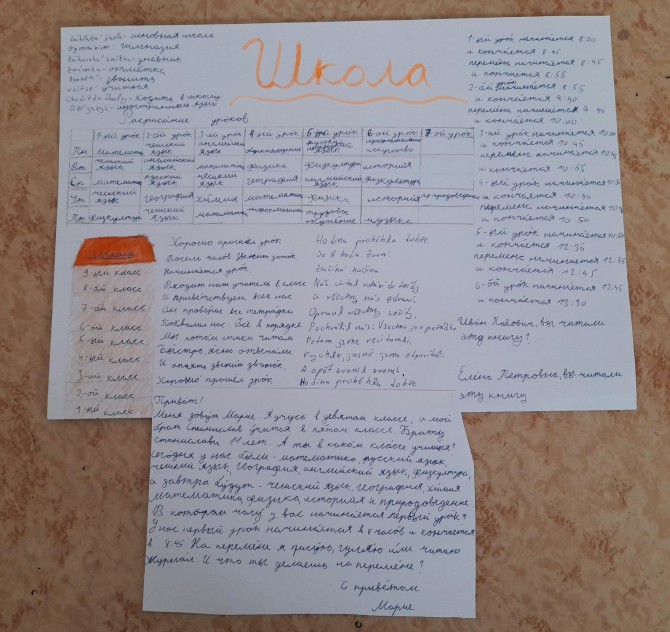 Школа
основная школа
гимназия
дневник
отметка
звонить
учиться
ходить в школу
Расписание уроков
1-ый урок 2-ой урок 3-ий урок 4-ый урок 5-ый урок 6-ой урок 7-ой урок
Пн математика чешский язык английский язык русский язык искусство
Вт чешский язык английский язык математика физика физкультура история
Ср математика русский язык чешский язык география английский язык физкультура
Чт чешский язык география химия математика физика история природоведение
Пт физкультура чешский язык математика информатика трудовое обучение музыка
школа
9-ый класс
8-ой класс
7-ой класс
6-ой класс
5-ый класс
4-ый класс
3-ий класс
2-ой класс
1-ый класс
Хорошо прошёл урок
Восемь часов звенит звонок
Начинается урок
Входит наш учитель в класс
И приветствует всех нас
Он проверит все тетрадки
Похвалил нас Всё в порядке
Мы потом стихи читали
Быстро, ясно отвечали
И опять звенит звонок.
Хорошо прошёл урок
Hodina proběhla dobře
Je 8 hodin zvoní
Začíná hodina
Náš učitel vchází do třídy
a všechny nás zdraví.
Opraví všechny sešity.
Pochválil nás: Všechno je v pořádku
Potom jsme recitovali,
rychle, jasně jsme odpovídali.
A opět zvoní zvonek,
Hodina proběhla dobře
1-ый урок начинается 8:00
и кончается 8:45
перемена начинается 8:45
и кончается 8:55
2-ой урок начинается 8:55
и кончается 9:40
перемена начинается 9:40
и кончается 10:00
3-ий урок начинается 10:00
и кончается 10:45
перемена начинается 10:45
и кончается 10:55
4-ый урок начинается
и кончается
перемена начинается
и кончается
5-ый урок начинается
и кончается 12:35
перемена начинается 12:35
и кончается 12:45
6-ой урок начинается 12:45
и кончается 13:30
Иван Павлович, вы читали
эту книгу?
Елена Петровна, вы читали
эту книгу
Привет!
Меня зовут Марие. Я учусь в девятом классе, а мой
брат Станислав учится в пятом классе. Брату
Станиславу 11 лет. А ты в каком классе учишься?
Сегодня у нас были - математика, русский язык
чешкий язык, география, английский язык, физкультура,
а завтра будут - чешский язык, география, химия
математика, физика, история и природоведение
В котором часу у вас начинается первый урок?
У нас первый урок начинается в 8 часов и кончается
в 8:45. На перемене я рисую, гуляю или читаю
журнал. И что ты делаешь на перемене?
С приветом
Марие